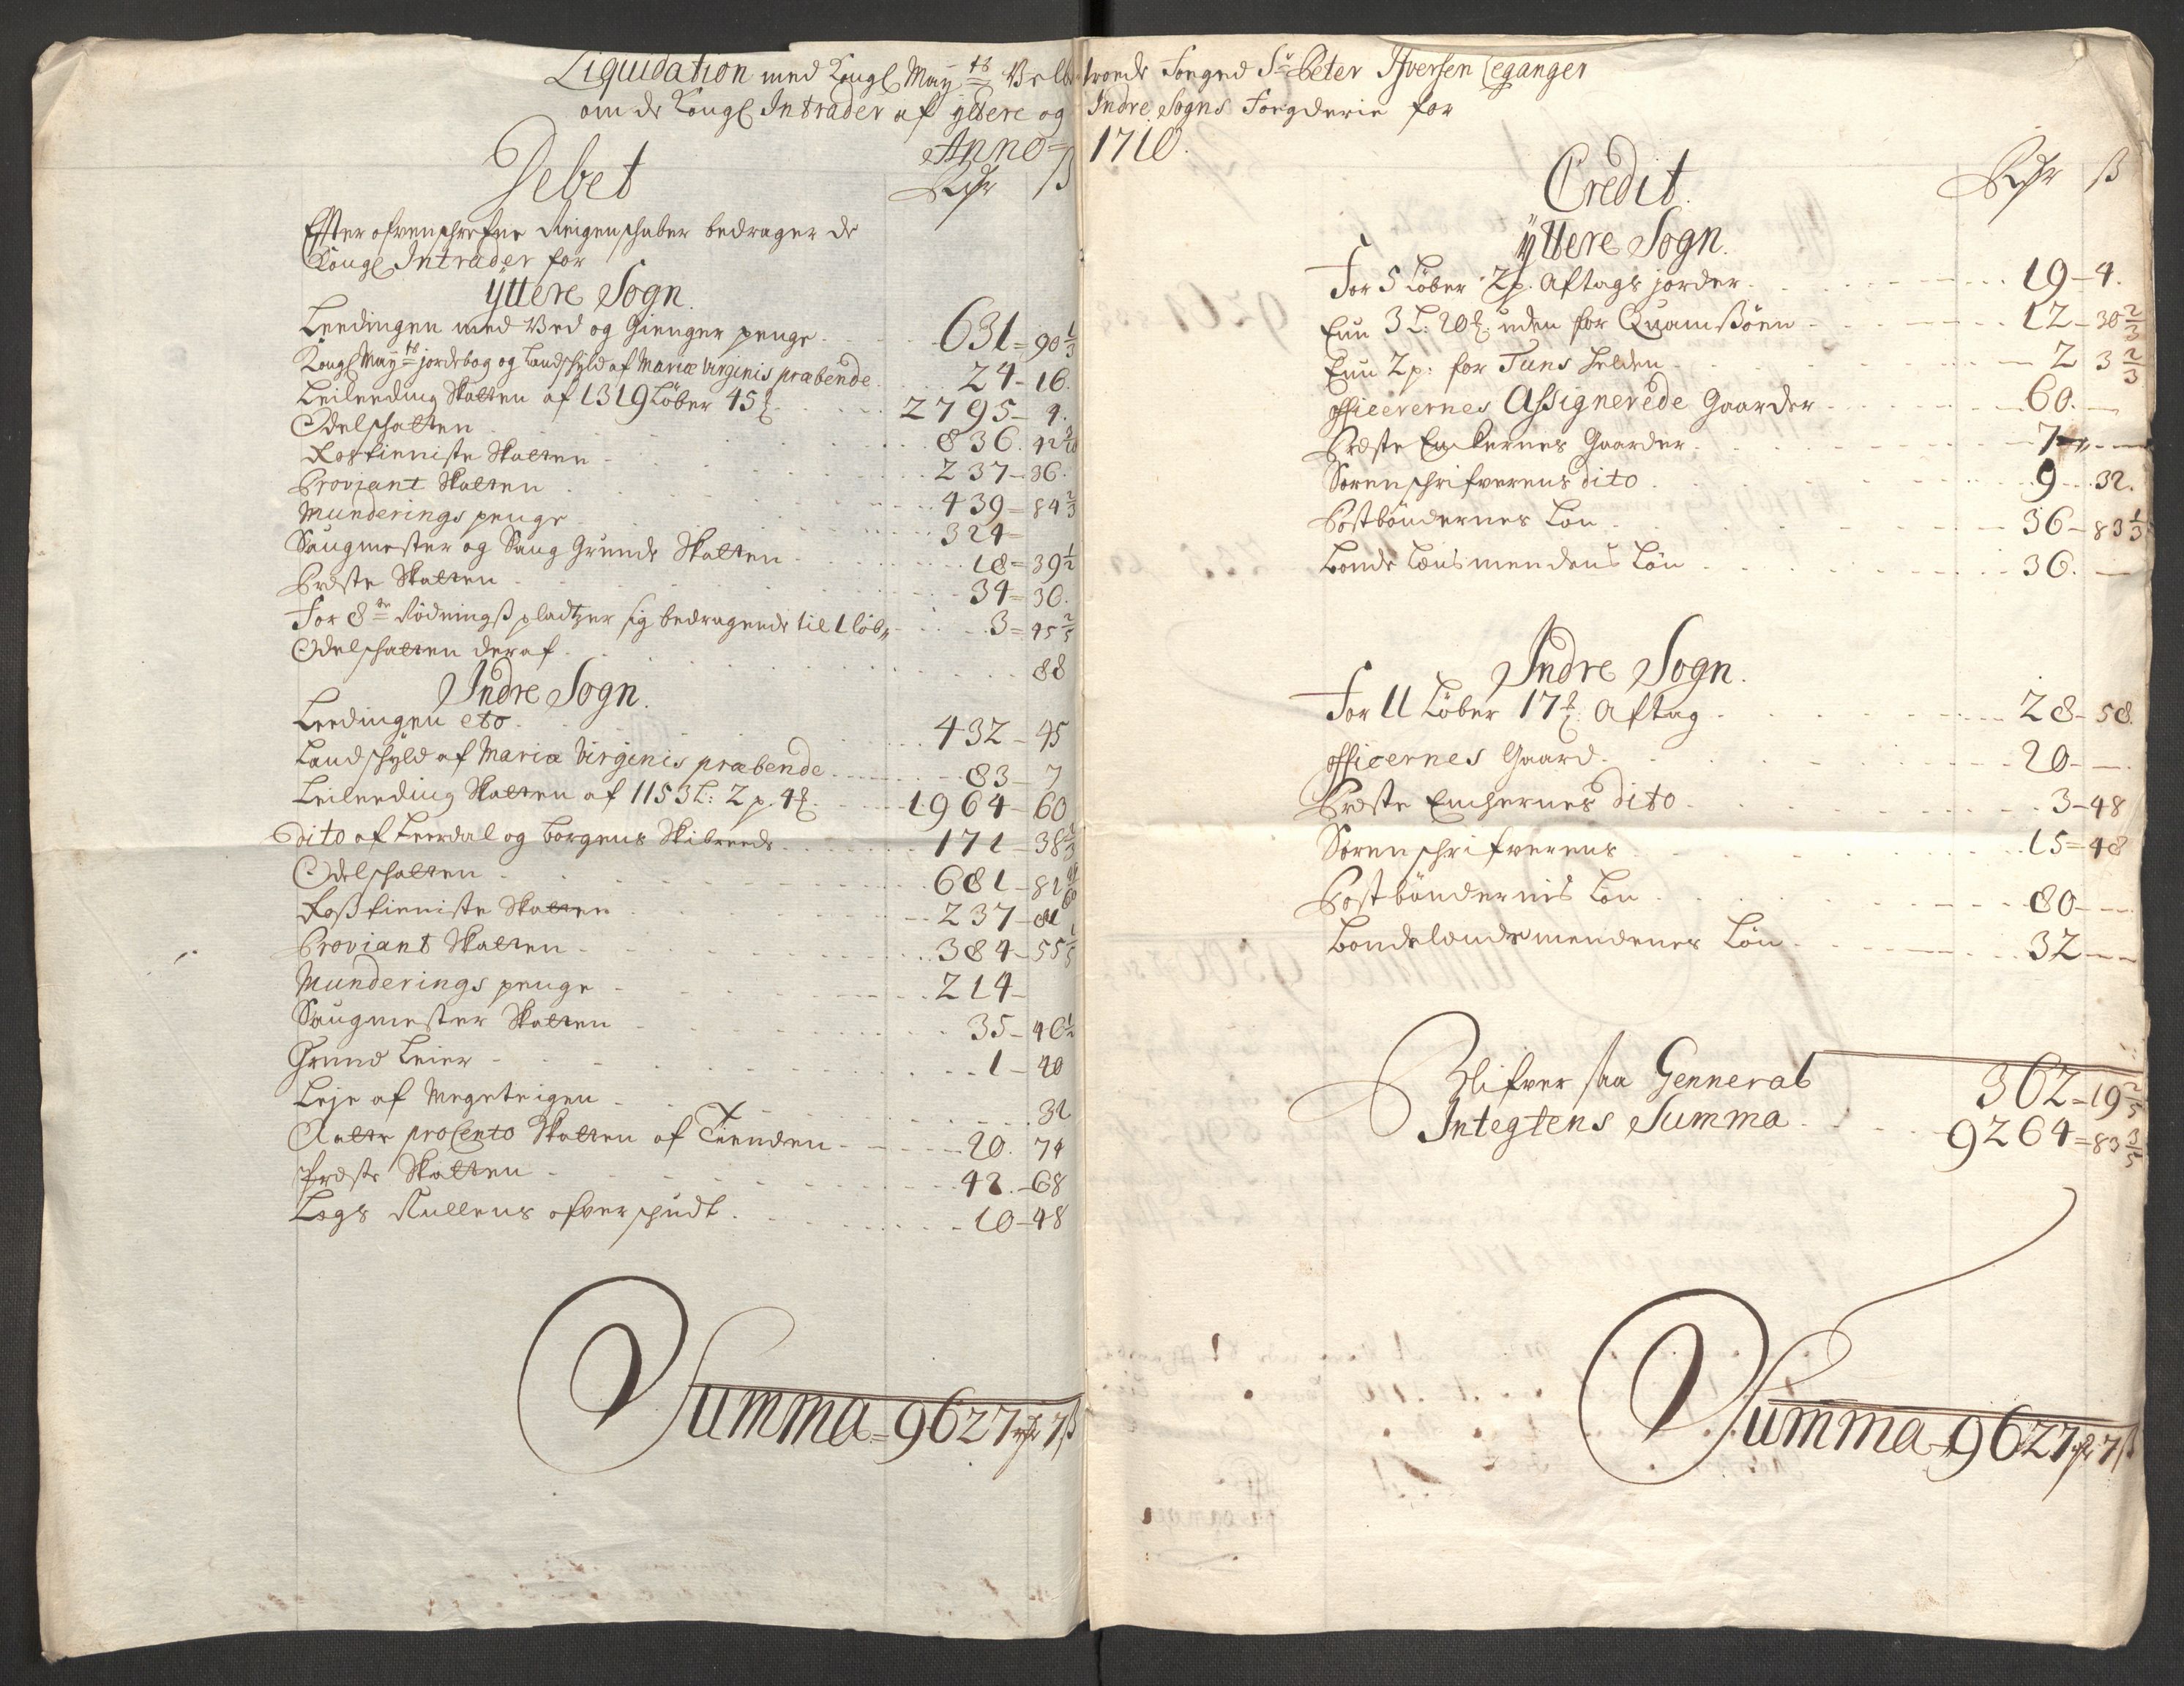 Liquidation med Kongl May:ts Velbetroede Foeged Sr Peter Iversen Leganger
om de Kongl Intrader af yttere og Indre Sogns Foegderie for
Anno 1710.
Debet
Rdr ß
Effter ofvenschrefne Reigenschaber bedrager de
Kongl Intrader for
yttere Sogn.
Leedingen med Ved og Gienger penge 631 = 90 1/3
Kongl May:ts jordebog og Landschyld af Mariæ Virginis præbende 24 - 16.
Leilending Skatten af 1319 Löber 45 2795 - 4.
Odelschatten 836. 42
Rostieniste Skatten 237 - 36.
Proviant Skatten 439 = 84 2/3
Munderings penge 324 =
Saugmester og Saug Grunds Skatten 18 = 39 1/2
Præste Skatten 34 = 30.
For 8de Rödnings pladtzer sig bedragende til 1 löb 3 = 45 2/5
Odelschatten deraf 88
Indre Sogn.
Leedingen etc 432 - 45
Landschyld af Mariæ Virginis præbende 83 - 7
Leilending Skatten af 1153 L: 2 p. 4 1964 - 60
Dito af Leerdal og Borgens Skibreede 171 - 38 2/3
Odelschatten 681 - 82
Rosstieniste Skatten 237 - 81
Proviant Skatten 384 - 55 1/5
Munderings penge 214 -
Saugmester Skatten 35 - 40 1/2
Grund Leier 1 - 40
Leje af Megeteigen 32
Aatte proCento Skatten af Tienden 20. 74
Præste Skatten 42. - 68
Legs Rullens ofverschudt 10 - 48
Summa = 9627 rdr 7 ß
Credit.
Rdr ß
yttere Sogn.
For 5 Löber 2 p. Aftags jorder 19 - 4.
Enn 3 L: 20 uden for Quamsöen 12 - 30 2/3
Enn 2 p: for Tuns Felden 2 3 2/3
officerernes Assignerede Gaarder 60. -
Præste Enckernes Gaarder 7 - -
Sorenschrifverens dito 9 - 32.
Postböndernes Lon 36 - 83 1/3
Bonde Lensmendens Lön 36. -
Indre Sogn.
For 11 Löber 17 Aftag 28 - 58.
officernes Gaard 20 - -
Præste Enchernes dito 3 - 48
Sorenschrifverens 15 = 48
Postböndernis Lon 80 - -
Bondelendsmendenes Lön 32 - -
362 = 19 2/5
Blifver saa Genneral
Integtens Summa 9264 = 83 3/5
Summa = 9627 rdr 7 ß